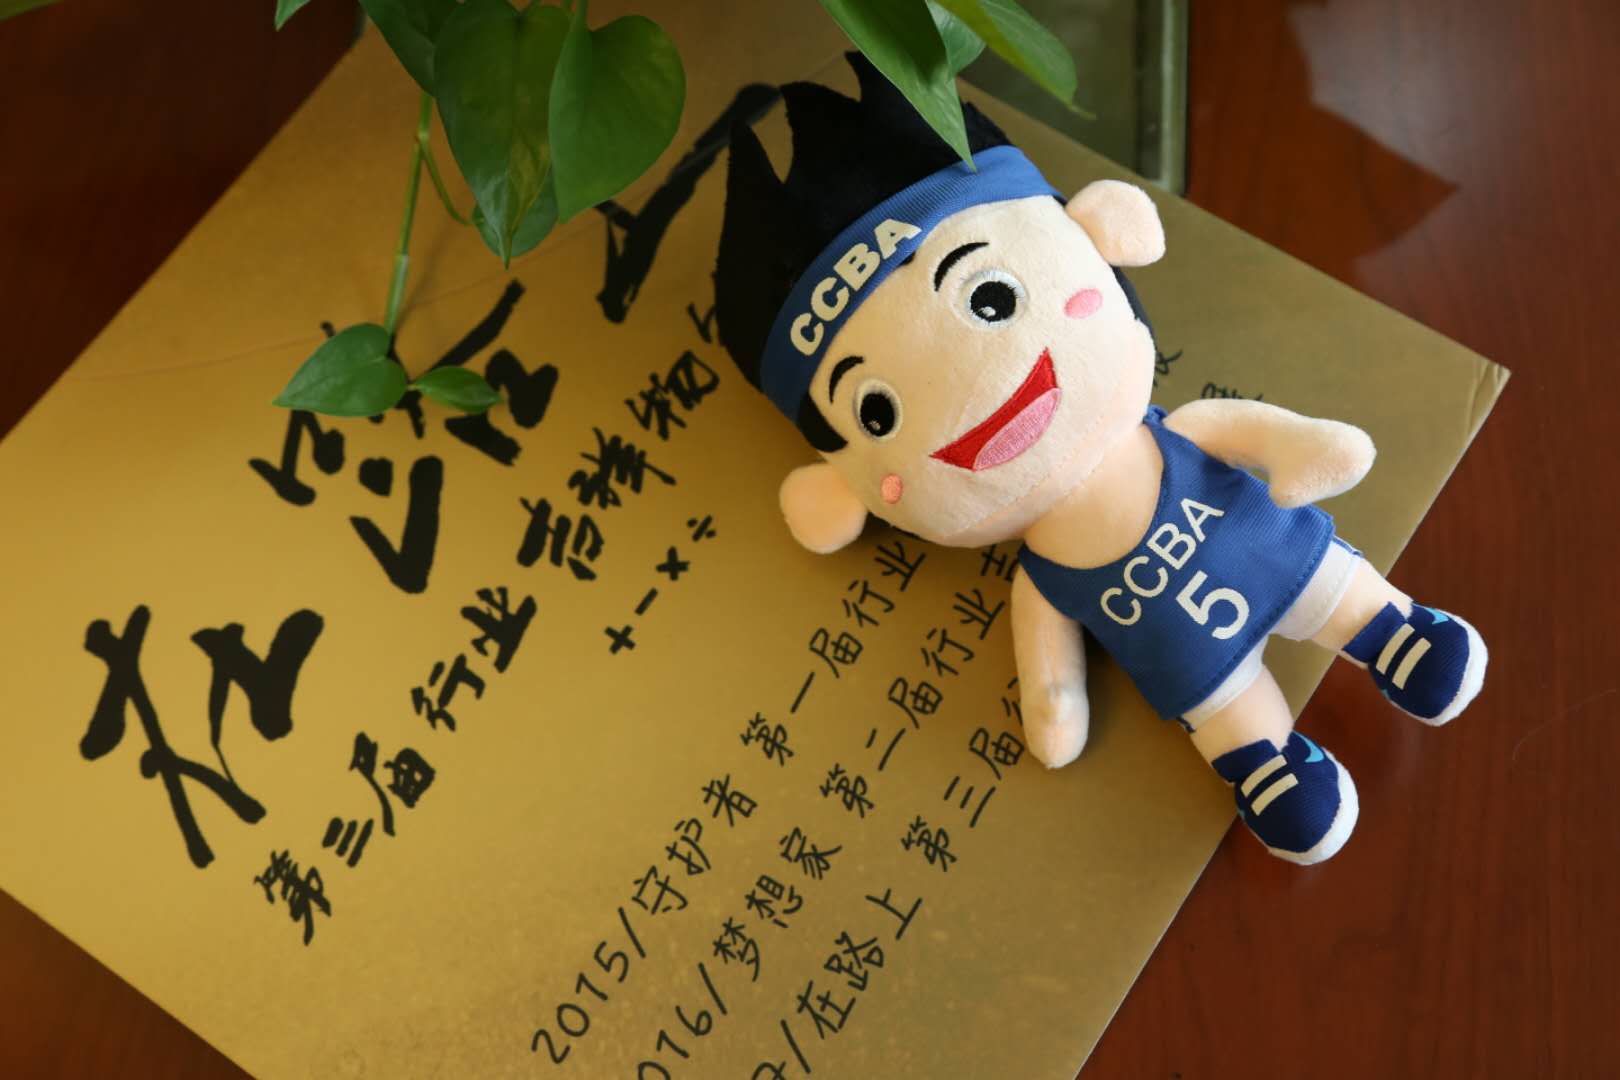 在路上
第三届行业吉祥物
+-×÷
2015/守护者 第一届行业
2016/梦想家 第二届行业吉
/在路上 第三届行
CCBA
CCBA
5